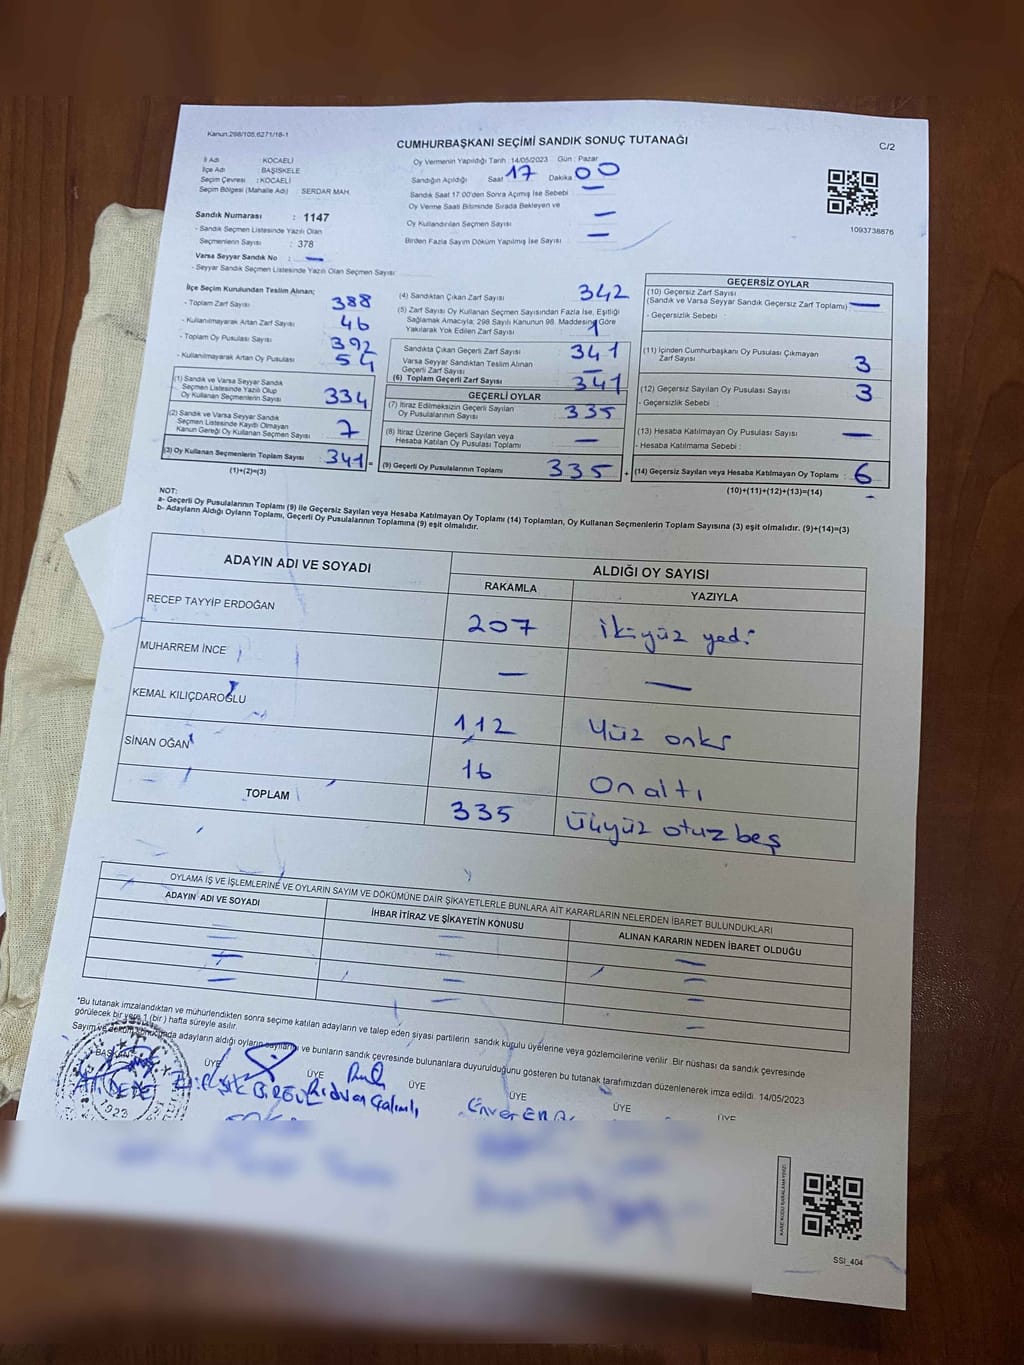 Kanun:298/105,6271/18-1
CUMHURBAŞKANI SEÇİMİ SANDIK SONUÇ TUTANAĞI
C/2
İl Adı : KOCAELİ
İlçe Adı : BAŞİSKELE
Seçim Çevresi : KOCAELİ
Seçim Bölgesi (Mahalle Adı) : SERDAR MAH.
Sandık Numarası : 1147
- Sandık Seçmen Listesinde Yazılı Olan
Seçmenlerin Sayısı : 378
Varsa Seyyar Sandık No : —
- Seyyar Sandık Seçmen Listesinde Yazılı Olan Seçmen Sayısı
Oy Vermenin Yapıldığı Tarih :14/05/2023 Gün : Pazar
Sandığın Açıldığı Saat 17 Dakika 00
Sandık Saat 17:00'den Sonra Açımış İse Sebebi —
Oy Verme Saati Bitiminde Sırada Bekleyen ve
Oy Kullandırılan Seçmen Sayısı —
Birden Fazla Sayım Döküm Yapılmış İse Sayısı —
1093738876
İlçe Seçim Kurulundan Teslim Alınan;
- Toplam Zarf Sayısı 388
- Kullanılmayarak Artan Zarf Sayısı 46
- Toplam Oy Pusulası Sayısı 392
- Kullanılmayarak Artan Oy Pusulası 54
(1) Sandık ve Varsa Seyyar Sandık
Seçmen Listesinde Yazılı Olup
Oy Kullanan Seçmenlerin Sayısı 334
(2) Sandık ve Varsa Seyyar Sandık
Seçmen Listesinde Kaydı Olmayan
Kanun Gereği Oy Kullanan Seçmen Sayısı 7
(3) Oy Kullanan Seçmenlerin Toplam Sayısı 341 =
(1)+(2)=(3)
(4) Sandıktan Çıkan Zarf Sayısı 342
(5) Zarf Sayısı Oy Kullanan Seçmen Sayısından Fazla İse, Eşitliği
Sağlamak Amacıyla; 298 Sayılı Kanunun 98. Maddesine Göre
Yakılarak Yok Edilen Zarf Sayısı 1
Sandıkta Çıkan Geçerli Zarf Sayısı 341
Varsa Seyyar Sandıktan Teslim Alınan
Geçerli Zarf Sayısı —
(6) Toplam Geçerli Zarf Sayısı 341
GEÇERLİ OYLAR
(7) İtiraz Edilmeksizin Geçerli Sayılan
Oy Pusulalarının Sayısı 335
(8) İtiraz Üzerine Geçerli Sayılan veya
Hesaba Katılan Oy Pusulası Toplamı —
(9) Geçerli Oy Pusulalarının Toplamı 335 +
GEÇERSİZ OYLAR
(10) Geçersiz Zarf Sayısı
(Sandık ve Varsa Seyyar Sandık Geçersiz Zarf Toplamı) —
- Geçersizlik Sebebi :
(11) İçinden Cumhurbaşkanı Oy Pusulası Çıkmayan
Zarf Sayısı 3
(12) Geçersiz Sayılan Oy Pusulası Sayısı 3
- Geçersizlik Sebebi :
(13) Hesaba Katılmayan Oy Pusulası Sayısı —
- Hesaba Katılmama Sebebi :
(14) Geçersiz Sayılan veya Hesaba Katılmayan Oy Toplamı : 6
(10)+(11)+(12)+(13)=(14)
NOT:
a- Geçerli Oy Pusulalarının Toplamı (9) ile Geçersiz Sayılan veya Hesaba Katılmayan Oy Toplamı (14) Toplamları, Oy Kullanan Seçmenlerin Toplam Sayısına (3) eşit olmalıdır. (9)+(14)=(3)
b- Adayların Aldığı Oyların Toplamı, Geçerli Oy Pusulalarının Toplamına (9) eşit olmalıdır.
ADAYIN ADI VE SOYADI
ALDIĞI OY SAYISI
RAKAMLA YAZIYLA
RECEP TAYYİP ERDOĞAN 207 ikiyüz yedi
MUHARREM İNCE — —
KEMAL KILIÇDAROĞLU 112 Yüz oniki
SİNAN OĞAN 16 On altı
TOPLAM 335 Üçyüz otuz beş
OYLAMA İŞ VE İŞLEMLERİNE VE OYLARIN SAYIM VE DÖKÜMÜNE DAİR ŞİKAYETLERLE BUNLARA AİT KARARLARIN NELERDEN İBARET BULUNDUKLARI
ADAYIN ADI VE SOYADI İHBAR İTİRAZ VE ŞİKAYETİN KONUSU ALINAN KARARIN NEDEN İBARET OLDUĞU
*Bu tutanak imzalandıktan ve mühürlendikten sonra seçime katılan adayların ve talep eden siyasi partilerin sandık kurulu üyelerine veya gözlemcilerine verilir. Bir nüshası da sandık çevresinde
görülecek bir yere 1 (bir) hafta süreyle asılır.
Sayım ve dökümü sonucunda adayların aldığı oyların sayılarını ve bunların sandık çevresinde bulunanlara duyurulduğunu gösteren bu tutanak tarafımızdan düzenlenerek imza edildi. 14/05/2023
BAŞKAN ÜYE ÜYE ÜYE ÜYE ÜYE ÜYE
Rıdvan Çalımlı
1923
KARE KODU KARALAMAYINIZ!
SSI_404